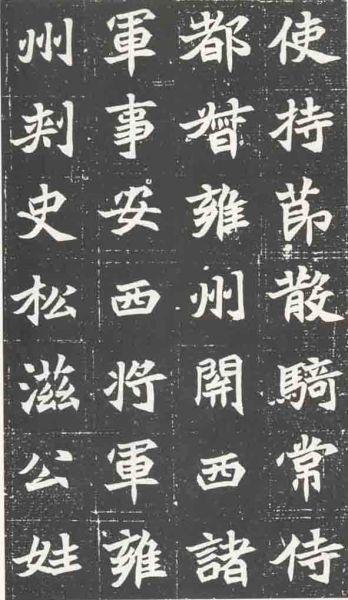 使持節散騎常侍
都督雍州關西諸
軍事安西将軍雍
州刺史松滋公姓